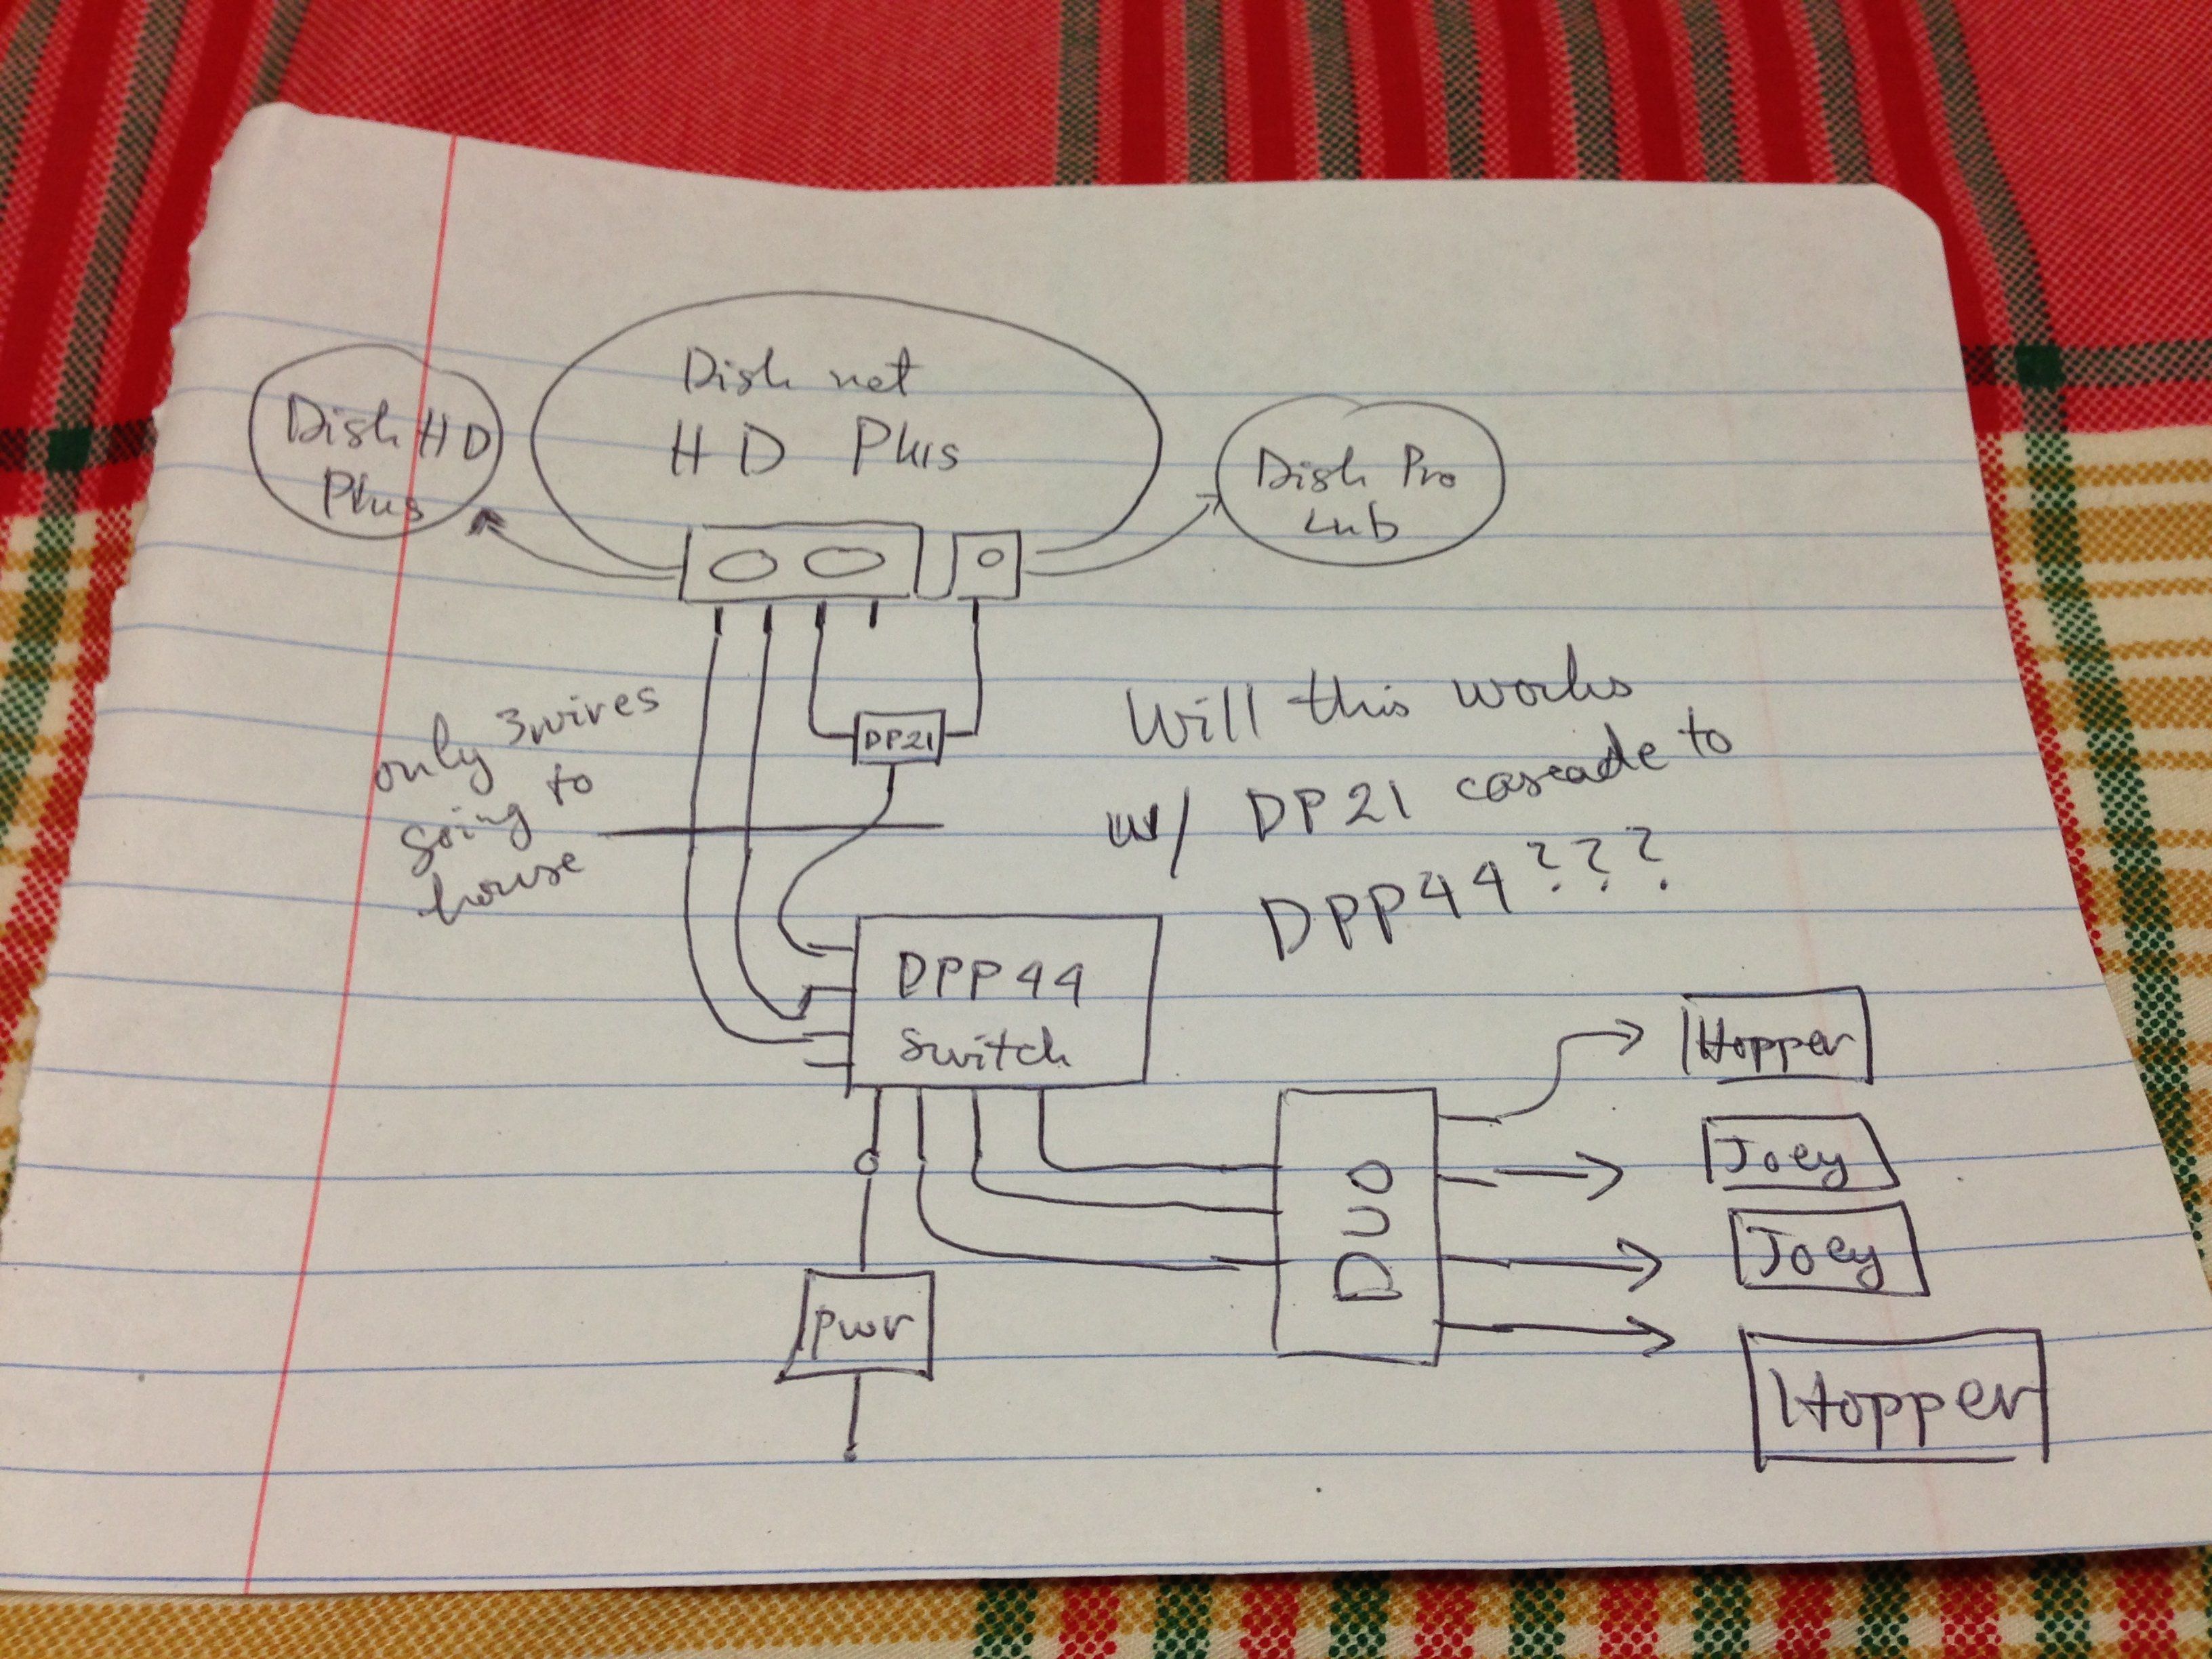 Dish net
HD Plus
Dish HD
Plus
Dish Pro
Lnb
only 3 wires
going to
house
DP21
Will this works
w/ DP21 cascade to
DPP44???
DPP44
Switch
Pwr
DUO
Hopper
Joey
Joey
Hopper